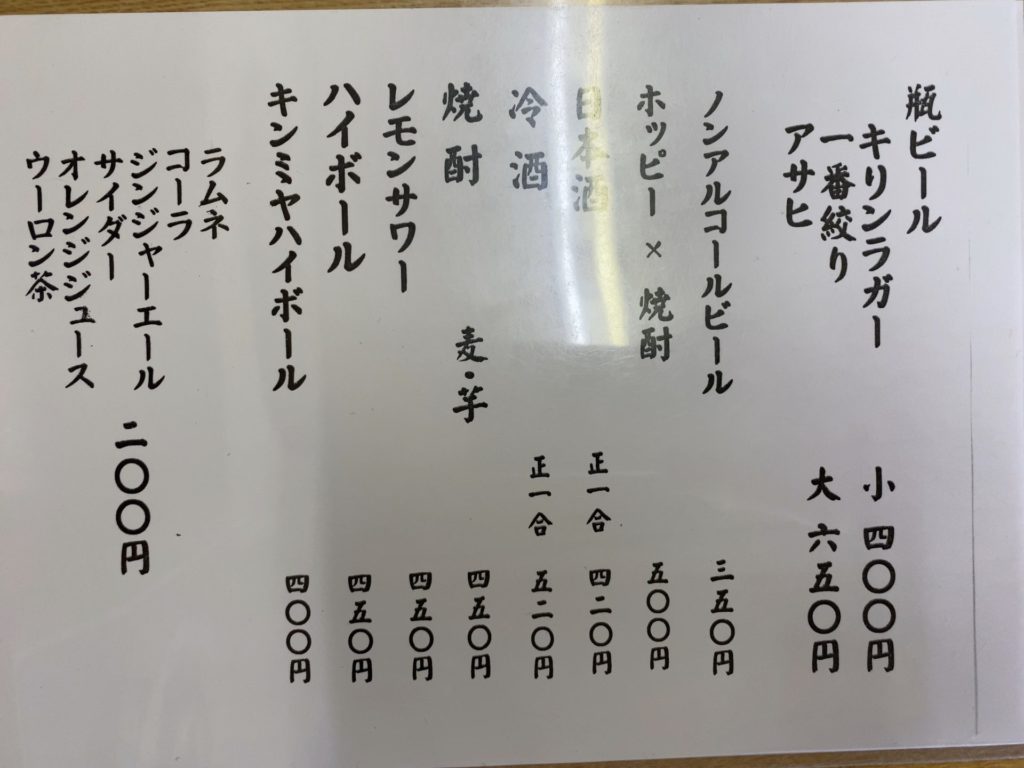 瓶ビール
キリンラガー 小 四〇〇円
一番絞り 大 六五〇円
アサヒ
ノンアルコールビール 三五〇円
ホッピー×焼酎 五〇〇円
日本酒 正一合 四二〇円
冷酒 正一合 五二〇円
焼酎 麦・芋 四五〇円
レモンサワー 四五〇円
ハイボール 四五〇円
キンミヤハイボール 四〇〇円
ラムネ
コーラ
ジンジャーエール 二〇〇円
サイダー
オレンジジュース
ウーロン茶